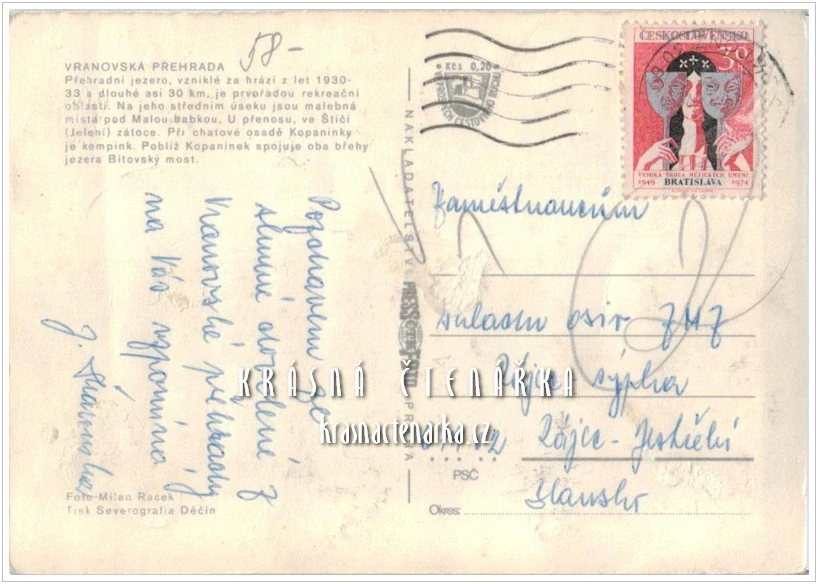 VRANOVSKÁ PŘEHRADA
58-
Přehradní jezero, vzniklé za hrází z let 1930-
33 a dlouhé asi 30 km, je prvořadou rekreační
oblastí. Na jeho středním úseku jsou malebná
místa pod Malou babkou, U přenosu, ve Štičí
(Jelení) zátoce. Při chatové osadě Kopaninky
je kempink. Poblíž Kopaninek spojuje oba břehy
jezera Bítovský most.
Pozdravem ze
slunné dovolené z
Vranovské přehrady
na Vás vzpomíná
J.
Foto Milan Racek
Tisk Severografia Děčín
NAKLADATELSTVÍ PRAHA
Kčs 0,20
ČESKOSLOVENSKO
30 h
VYSOKÁ ŠKOLA MÚZICKÝCH UMENÍ
1949 BRATISLAVA 1974
Zaměstnancům
osiv
Rájec sýpka
Rájec-Jestřebí
PSČ
Blansko
Okres:
KRÁSNÁ ČTENÁŘKA
krasnactenarka.cz